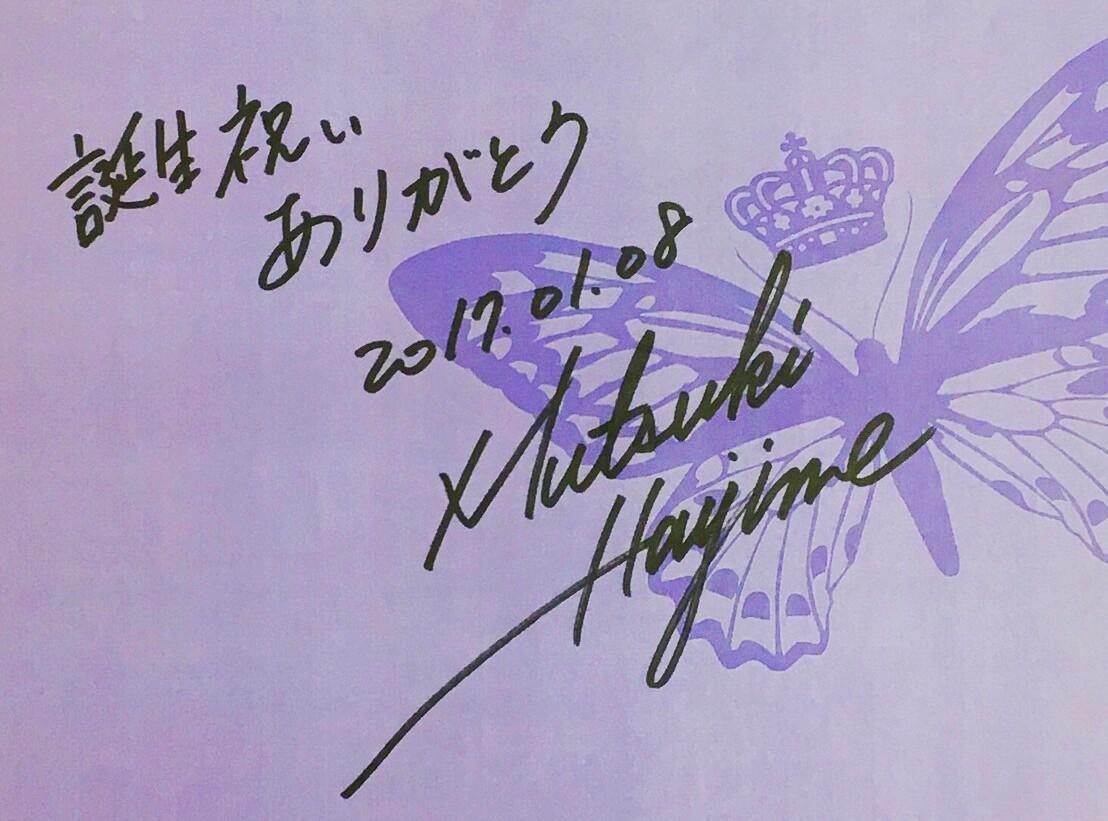 誕生祝い
ありがとう
2017.01.08
Mutsuki
Hajime